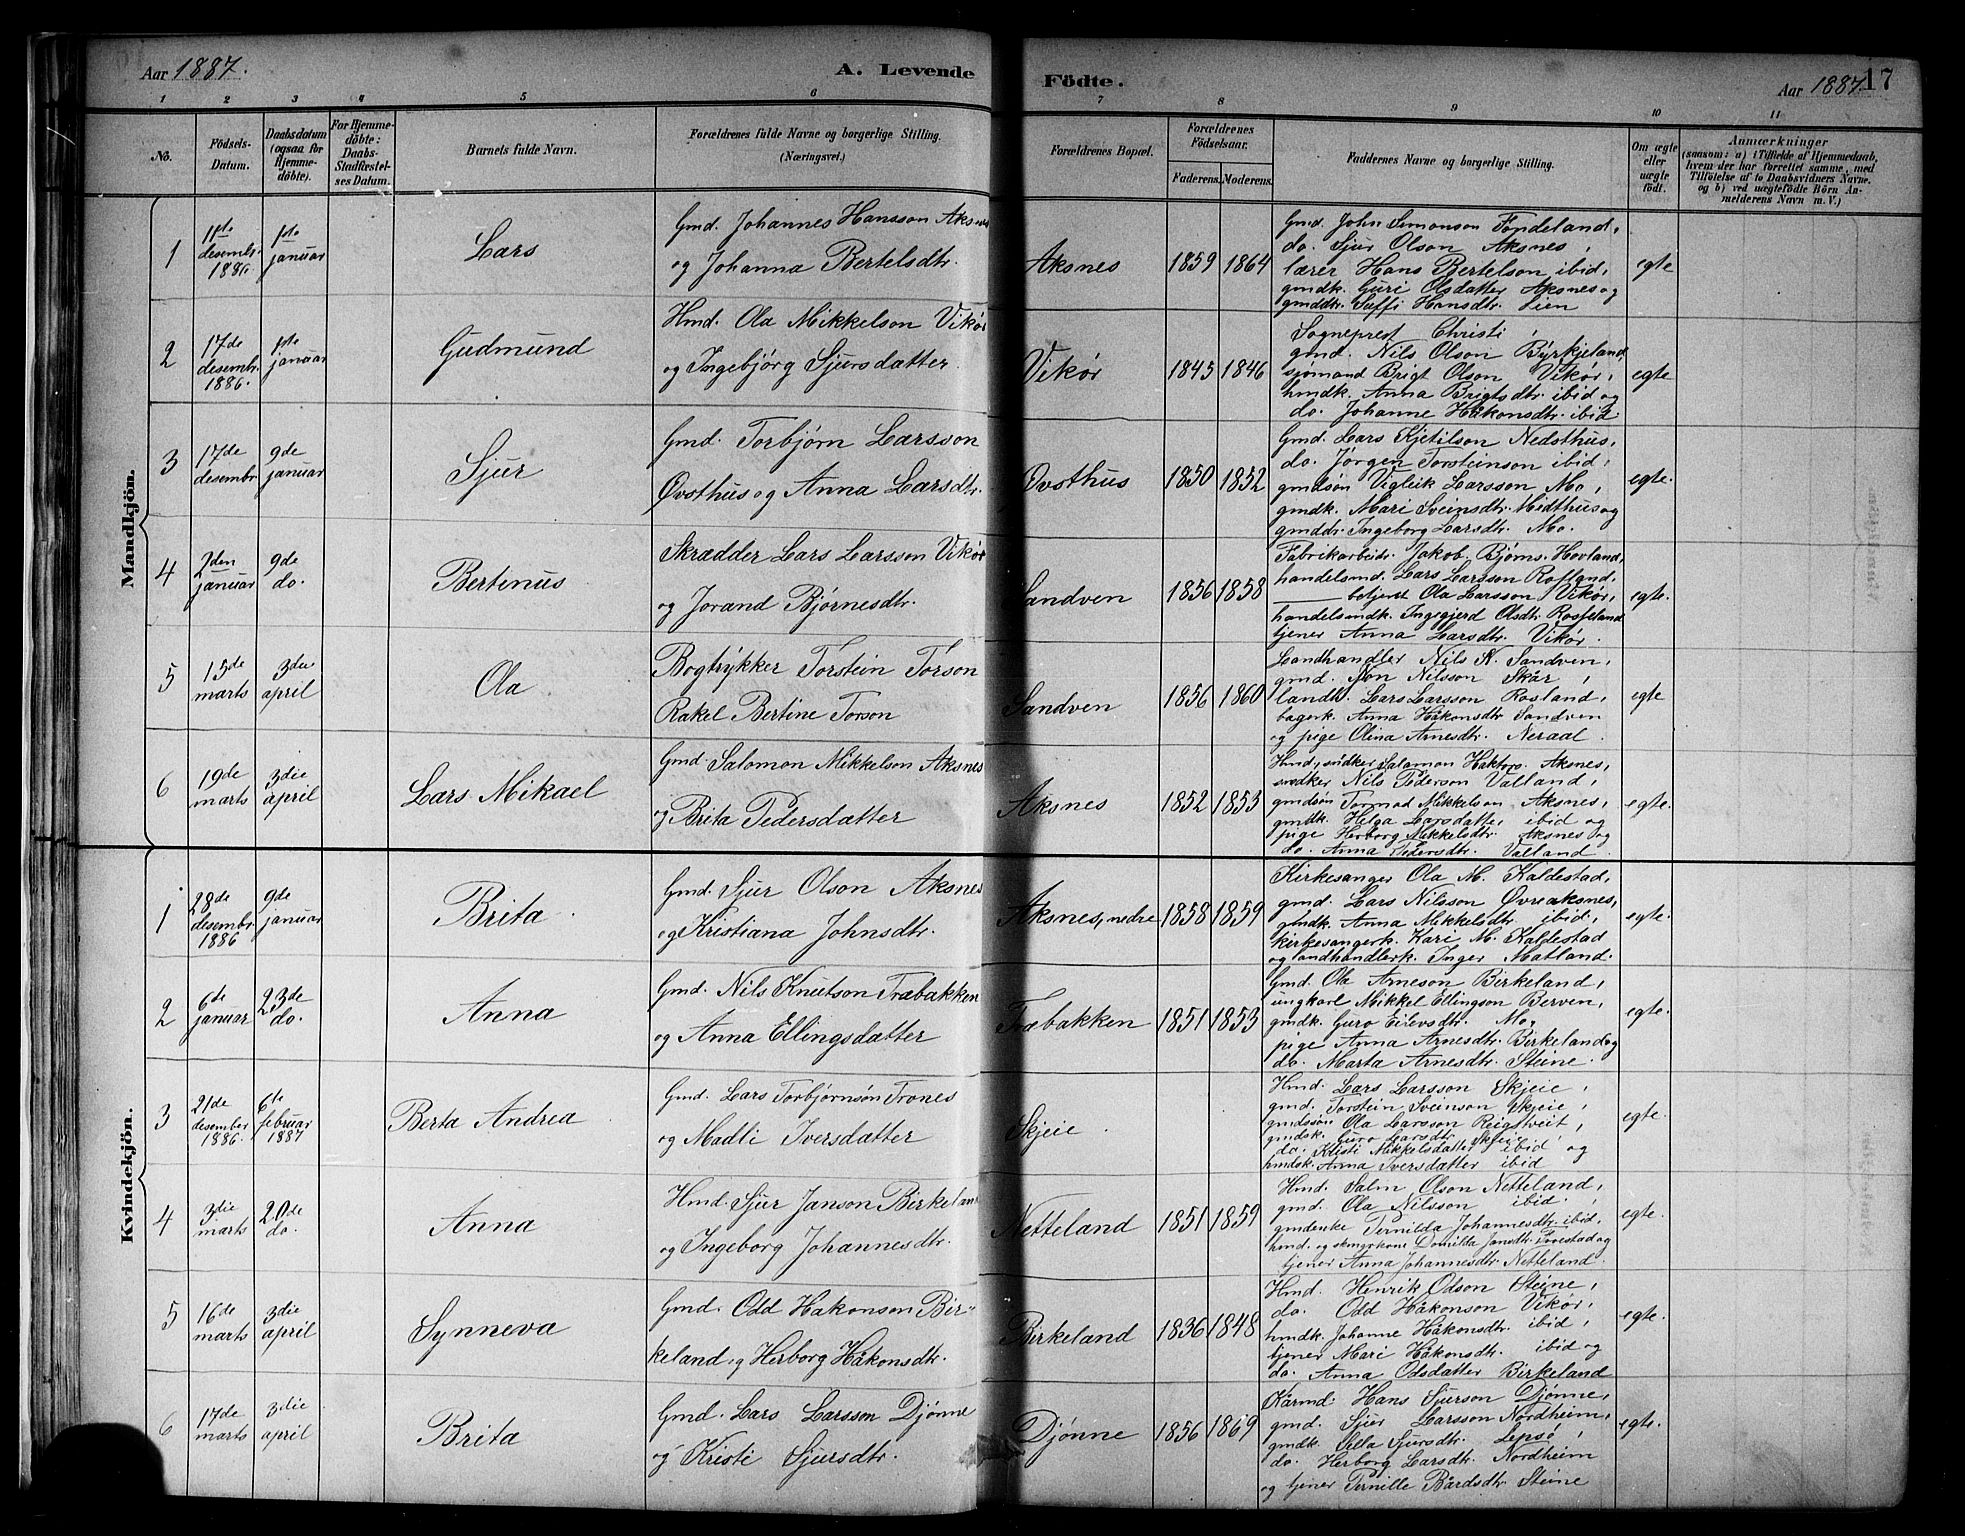 Aar 1887.
A. Levende Födte.
Aar 1887. 17
1 2 3 4 5 6 7 8 9 10 11
No.
Födsels-
Datum.
Daabsdatum
(ogsaa for
Hjemme-
döbte).
For Hjemme-
döbte:
Daabs-
Stadfæstel-
ses Datum.
Barnets fulde Navn.
Forældrenes fulde Navne og borgerlige Stilling.
(Næringsvei.)
Forældrenes Bopæl.
Forældrenes
Födselsaar.
Faderens. Moderens.
Faddernes Navne og borgerlige Stilling.
Om ægte
eller
uægte
födt.
Anmærkninger
(saasom: a) i Tilfælde af Hjemmedaab,
hvem der har forrettet samme, med
Tilföielse af to Daabsvidners Navne.
og b) ved uægtefödte Börn An-
melderens Navn m. V.)
Mandkjön.
1
11te
desembr.
1886.
1ste
januar
Lars
Gmd. Johannes Hansson Aksnes
og Johanna Bertelsdtr.
Aksnes
1859 1864
Gmd. John Simonson Fondeland,
do. Sjur Olson Aksnes,
lærer Hans Bertelson ibid,
gmdk. Guri Olsdatter Aksnes og
gmddtr. Seffi Hansdtr. Lien
egte
2
17de
desembr.
1886.
1ste
januar
Gudmund
Hmd. Ola Mikkelson Vikør
og Ingebjörg Sjursdatter.
Vikør
1845 1846
Sogneprest Christi
gmd. Nils Olson Byrkjeland
sjömand Brigt Olson Vikør,
hmdk. Anna Brigtsdtr. ibid og
do. Johanne Håkonsdtr. ibid.
egte
3
17de
desembr
9de
januar
Sjur
Gmd. Torbjørn Larsson
Øvsthus og Anna Larsdtr.
Øvsthus
1850 1852
Gmd. Lars Kjetilson Nedsthus,
do. Jörgen Torsteinson ibid,
gmdsön Vigleik Larsson Mo,
gmdk. Mari Sveinsdtr. Midthus og
gmddr. Ingeborg Larsdtr. Mo.
egte.
4
2den
januar
9de
do.
Bertinus
Skrædder Lars Larsson Vikør
og Jorand Bjørnesdtr.
Sandven
1856 1858
Fabrikarbeidr. Jakob Bjørns. Hovland,
handelsmd. Lars Larsson Rosland,
betjent Ola Larsson Vikør,
handelsmdk. Ingegjerd Olsdtr.
tjener Anna Larsdtr. Vikør.
egte.
5
15de
marts
3die
april
Ola
Bogtrykker Torstein Torson
Rakel Bertine Torson
Sandven
1856 1860
Landhandler Nils N. Sandven,
gmd. Jon Nilsson Skår,
landh. Lars Larsson Rosland,
bagerk. Anna Håkonsdtr Sandven
og pige Olina Arnesdtr. Neraal.
egte
6
19de
marts
3die
april
Lars Mikael
Gmd. Salomon Mikkelson Aksnes
og Brita Pedersdatter
Aksnes
1852 1853
Hmd, snidker Salomon Haktors. Aksnes,
snidker Nils Pederson Valland,
gmdsön Tormod Mikkelson Aksnes,
gmdk. Helga Larsdatter, ibid og
pige Herborg Mikkelsdtr. Aksnes og
do. Anna Pedersdtr. Valland.
egte.
Kvindekjön.
1
28de
desembr.
1886
9de
januar
Brita
Gmd. Sjur Olson Aksnes
og Kristiana Johnsdtr.
Aksnes, nedre
1858 1859
Kirkesanger Ola M. Kaldestad,
gmd. Lars Nilsson Øvreaksnes,
gmdk. Anna Mikkelsdtr. ibid,
kirkesangerk. Kari M. Kaldestad
og landhandlerk. Inger Matland.
egte.
2
6te
januar
23de
do.
Anna
Gmd. Nils Knutson Træbakken
og Anna Ellingsdatter
Træbakken
1851 1853
Gmd. Ola Arneson Birkeland,
ungkarl Mikkel Ellingson Berven,
gmdk. Guro Eilevsdtr. Mo,
pige Anna Arnesdtr. Birkeland og
do. Marta Arnesdtr. Steine.
egte.
3
21de
desember
1886.
6te
februar
1887
Berta Andrea
Gmd. Lars Torbjørnsön Trones
og Madli Iversdatter
Skjeie.
Hmd. Lars Larsson Skjeie,
gmd. Torstein Sveinson Skjeie,
gmdssön Ola Larsson Reigstveit,
gmdsk. Guro Larsdtr Skjeie
do. Kristi Mikkelsdatter ibid og
hmdsk. Anna Iversdatter ibid
egte.
4
3die
marts
20de
do.
Anna
Hmd. Sjur Janson Birkeland
og Ingeborg Johannesdtr.
Netteland
1851 1859
Hmd. Salm Olson Netteland,
gmd. Ola Nilsson ibid.
gmdenke Pernilda Johannesdtr. ibid,
hmd. og Domilda Jansdtr.
tjener Anna Johannesdtr. Netteland.
egte.
5
16de
marts
3die
april
Synneva
Gmd. Odd Hakonson Bir-
keland, og Herborg Håkonsdtr.
Birkeland
1836 1848
Hmd. Henrik Odson Steine,
do. Odd Håkonson Vikør,
hmdk. Johanne Håkonsdtr. ibid,
tjener Mari Håkonsdtr. ibid og
do. Anna Odsdatter Birkeland
egte.
6
17de
marts
3die
april
Brita
Gmd. Lars Larsson Djønne
og Kristi Sjursdtr.
Djønne
1856 1869
Kårmd. Hans Sjurson Djønne,
gmd. Sjur Larsson Nordheim,
gmdk. Sella Sjursdtr. Lepsö,
do. Herborg Larsdtr. Nordheim
og tjener Pernille Bårdsdtr. Steine
egte.